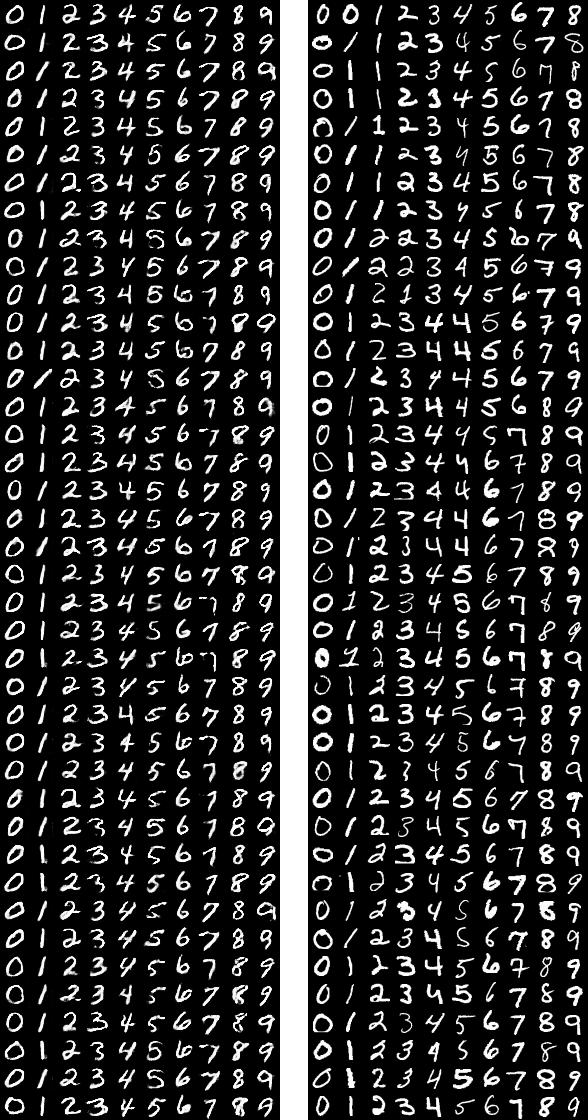 0 1 2 3 4 5 6 7 8 9 0 0 1 2 3 4 5 6 7 8
0 1 2 3 4 5 6 7 8 9 0 1 1 2 3 4 5 6 7 8
0 1 2 3 4 5 6 7 8 9 0 1 1 2 3 4 5 6 7 8
0 1 2 3 4 5 6 7 8 9 0 1 1 2 3 4 5 6 7 8
0 1 2 3 4 5 6 7 8 9 0 1 1 2 3 4 5 6 7 8
0 1 2 3 4 5 6 7 8 9 0 1 1 2 3 4 5 6 7 8
0 1 2 3 4 5 6 7 8 9 0 1 1 2 3 4 5 6 7 8
0 1 2 3 4 5 6 7 8 9 0 1 1 2 3 4 5 6 7 8
0 1 2 3 4 5 6 7 8 9 0 1 2 2 3 4 5 6 7 9
0 1 2 3 4 5 6 7 8 9 0 1 2 2 3 4 5 6 7 9
0 1 2 3 4 5 6 7 8 9 0 1 2 3 3 4 5 6 7 9
0 1 2 3 4 5 6 7 8 9 0 1 2 3 4 4 5 6 7 9
0 1 2 3 4 5 6 7 8 9 0 1 2 3 4 4 5 6 7 9
0 1 2 3 4 5 6 7 8 9 0 1 2 3 4 4 5 6 7 9
0 1 2 3 4 5 6 7 8 9 0 1 2 3 4 4 5 6 8 9
0 1 2 3 4 5 6 7 8 9 0 1 2 3 4 4 5 7 8 9
0 1 2 3 4 5 6 7 8 9 0 1 2 3 4 4 6 7 8 9
0 1 2 3 4 5 6 7 8 9 0 1 2 3 4 4 6 7 8 9
0 1 2 3 4 5 6 7 8 9 0 1 2 3 4 4 6 7 8 9
0 1 2 3 4 5 6 7 8 9 0 1 2 3 4 4 6 7 8 9
0 1 2 3 4 5 6 7 8 9 0 1 2 3 4 5 6 7 8 9
0 1 2 3 4 5 6 7 8 9 0 1 2 3 4 5 6 7 8 9
0 1 2 3 4 5 6 7 8 9 0 1 2 3 4 5 6 7 8 9
0 1 2 3 4 5 6 7 8 9 0 1 2 3 4 5 6 7 8 9
0 1 2 3 4 5 6 7 8 9 0 1 2 3 4 5 6 7 8 9
0 1 2 3 4 5 6 7 8 9 0 1 2 3 4 5 6 7 8 9
0 1 2 3 4 5 6 7 8 9 0 1 2 3 4 5 6 7 8 9
0 1 2 3 4 5 6 7 8 9 0 1 2 3 4 5 6 7 8 9
0 1 2 3 4 5 6 7 8 9 0 1 2 3 4 5 6 7 8 9
0 1 2 3 4 5 6 7 8 9 0 1 2 3 4 5 6 7 8 9
0 1 2 3 4 5 6 7 8 9 0 1 2 3 4 5 6 7 8 9
0 1 2 3 4 5 6 7 8 9 0 1 2 3 4 5 6 7 8 9
0 1 2 3 4 5 6 7 8 9 0 1 2 3 4 5 6 7 8 9
0 1 2 3 4 5 6 7 8 9 0 1 2 3 4 5 6 7 8 9
0 1 2 3 4 5 6 7 8 9 0 1 2 3 4 5 6 7 8 9
0 1 2 3 4 5 6 7 8 9 0 1 2 3 4 5 6 7 8 9
0 1 2 3 4 5 6 7 8 9 0 1 2 3 4 5 6 7 8 9
0 1 2 3 4 5 6 7 8 9 0 1 2 3 4 5 6 7 8 9
0 1 2 3 4 5 6 7 8 9 0 1 2 3 4 5 6 7 8 9
0 1 2 3 4 5 6 7 8 9 0 1 2 3 4 5 6 7 8 9